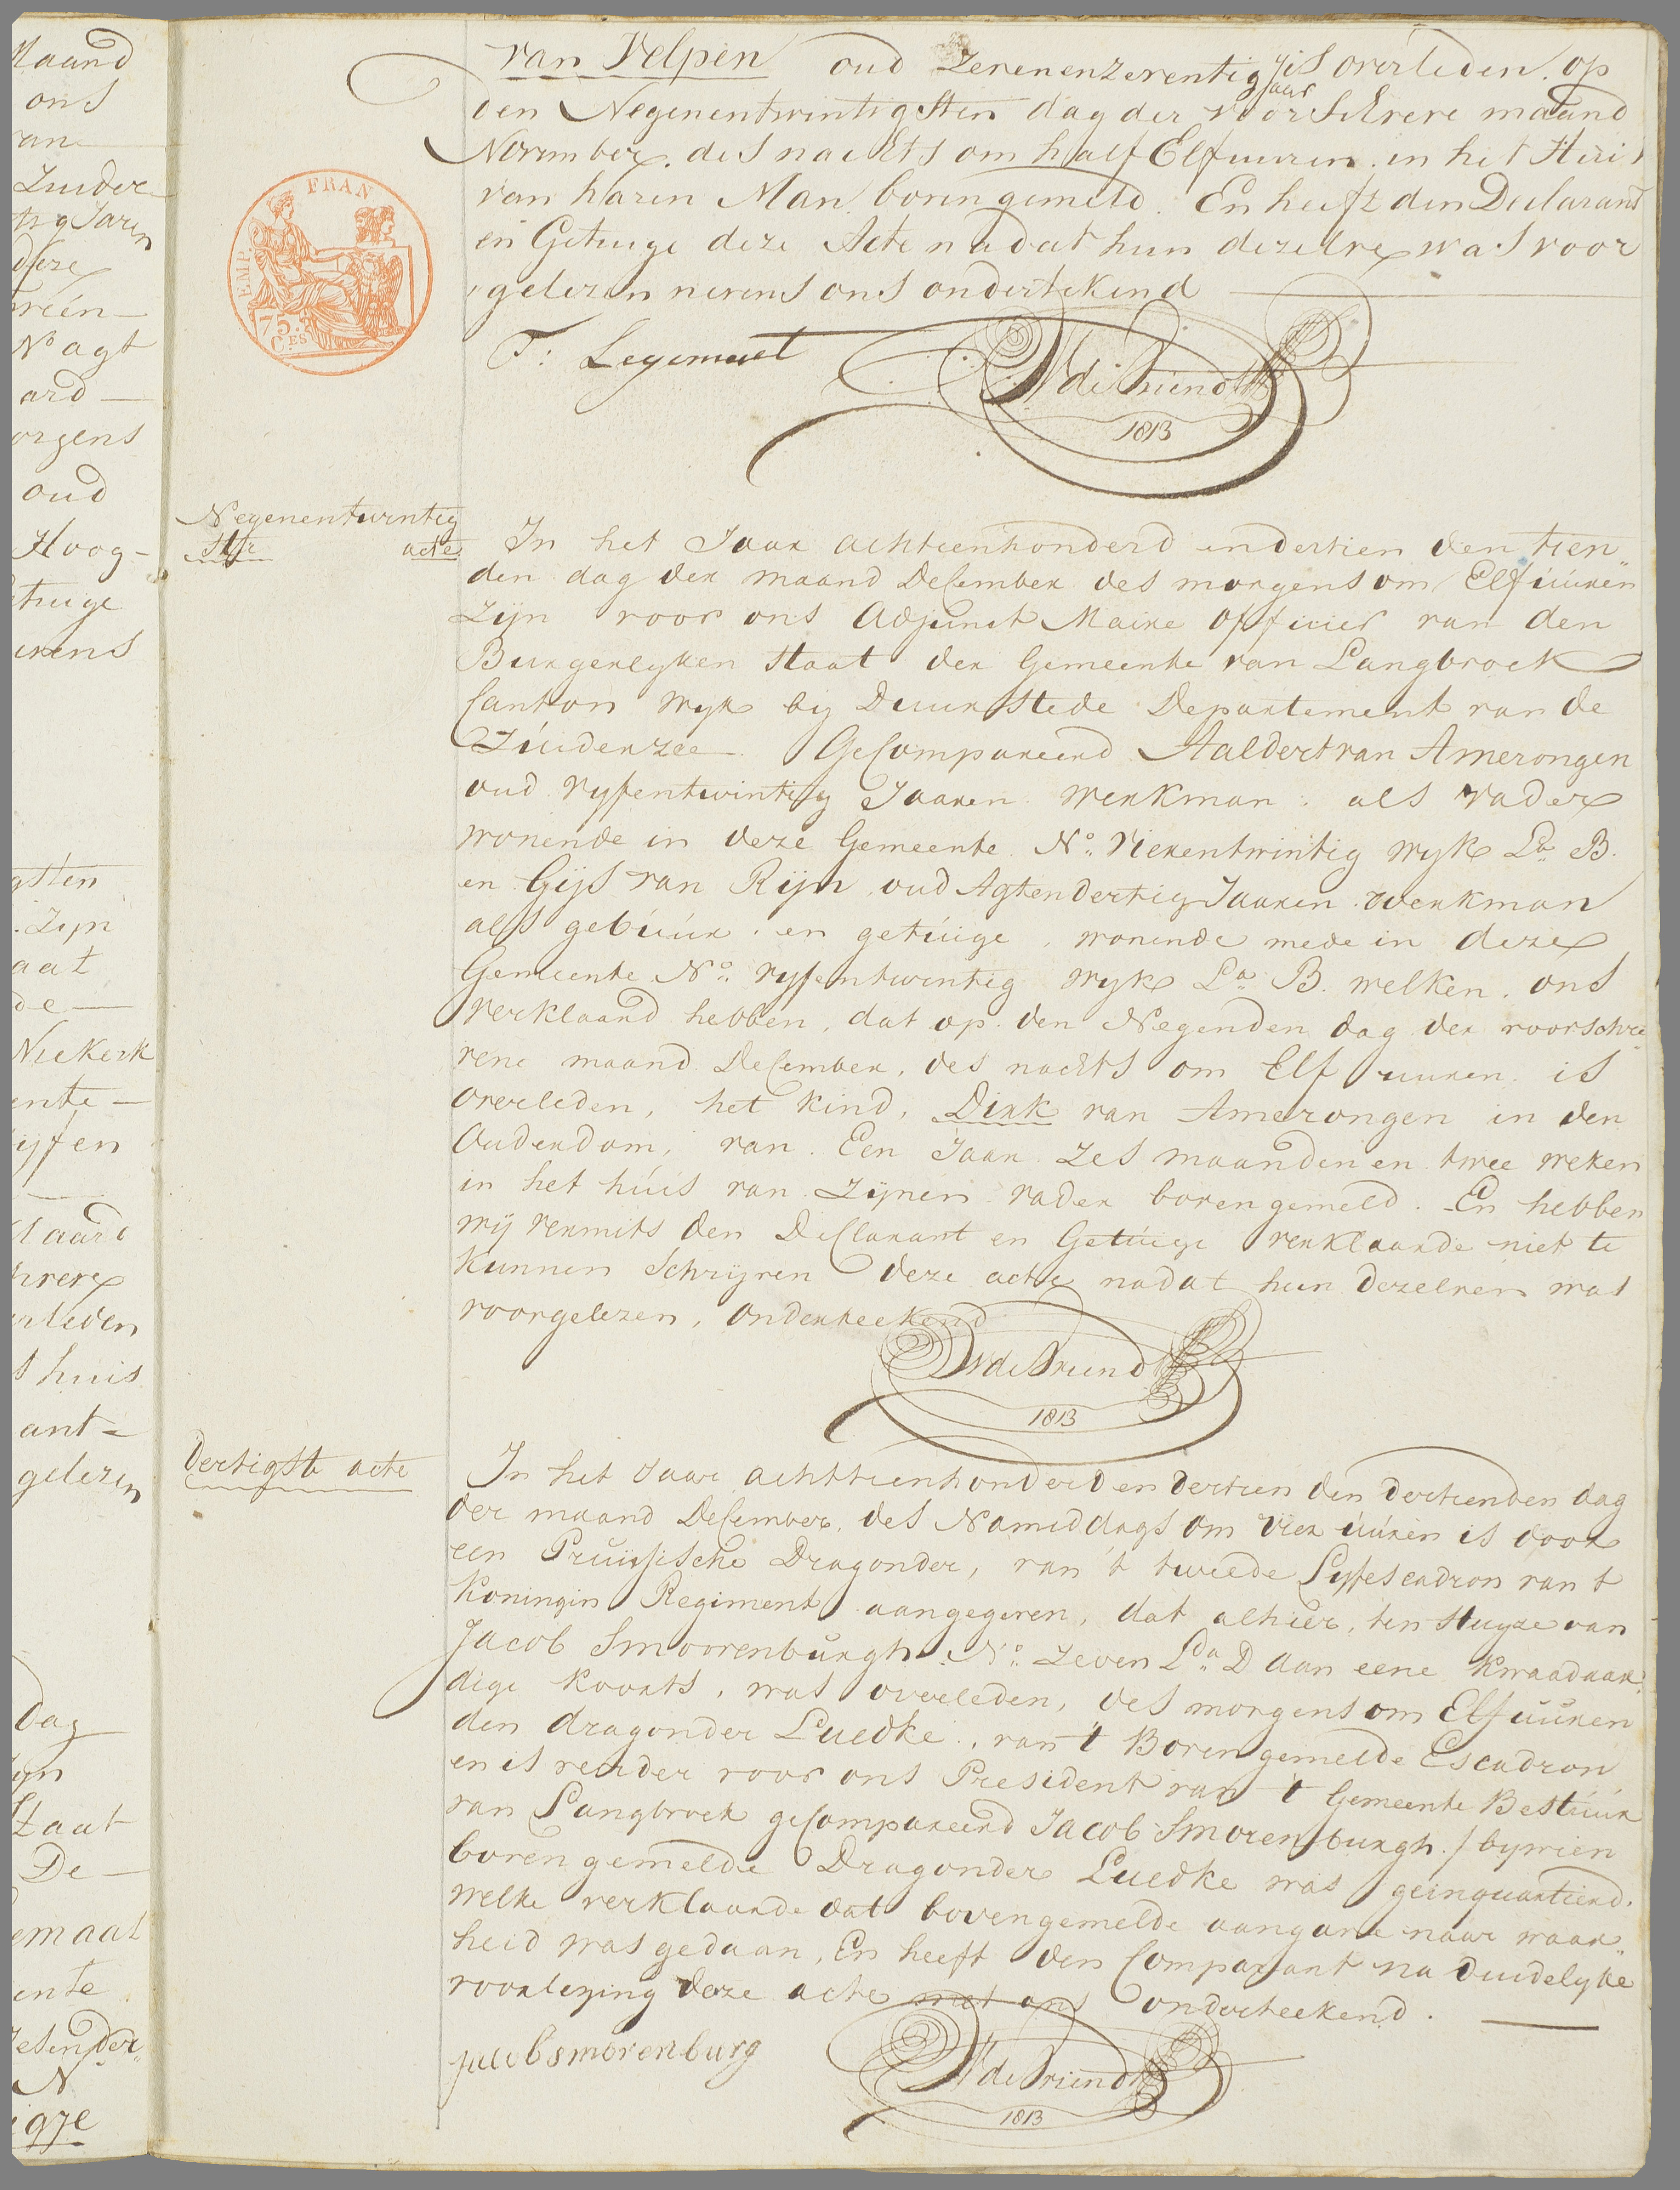 Maand
ons
van
Zuider
tig Jaren
deze
N agt
ard
orgens
oud
Hoog-
tuige
evens
gsten
Zyn
aat
de
Niekerk
ente
yfen
rleden
t huis
ant-
gelezen
dag
Staat
De
emaat
ente
N
van Velpen oud Zevenenzeventig jaar is overleden. op
den Negenentwintigsten dag der voorschreve maand
November. des nachts om half Elf uuren. in het Huis
van haren Man. bovengemeld. En heeft den Declarant
en Getuige deze Acte nadat hun dezelve was voor
gelezen nevens ons ondertekend
EMP. FRAN
75.
C.ES
T: Legemaet
W de Vriendt
1813
Negenentwintig
ste acte
In het Jaar achtienhonderd endertien den tien"
den dag der maand December des morgens om Elf uuren
Zijn voor ons Adjunct Maire officier van den
Burgerlyken Staat der Gemeente van Langbroek
Canton Wyk by Duurstede Departement van de
Zúiderzee. Gecompareerd Aaldert van Amerongen
oud Vyfentwintig Jaaren Werkman. als Vader
wonende in deze Gemeente No. Vierentwintig Wyk La. B.
en Gijs van Rijn oud Agtendertig Jaaren. Werkman
als gebúúr. en getúige, wonende mede in deze
Gemeente No. vyfentwintig Wyk La. B. welken. ons
Verklaard hebben, dat op den Negenden dag der voorschre
vene maand December, des nachts om Elf uuren. is
overleden, het kind, Dirk van Amerongen in den
Ouderdom, van. Een Jaar Zes maanden en twee weken
in het húis van Zijnen vader bovengemeld. En hebben
wij vermits den Declarant en Getúige verklaarde niet te
kunnen Schrijven deze acte nadat hun dezelven was
voorgelezen, Onderteekend
W de Vriendt
1813
Dertigste acte
In het Jaar achttienhonderd en dertien den dertienden dag
der maand December. des Namiddags om vier úúren is door
een Pruissische Dragonder, van 't tweede Lyfescadron van t
Koningin Regiment aangegeven, dat alhier, ten Huyze van
Jacob Smoorenburgh. No. Zeven La. D aan eene kwaadaar
dige koorts, was overleden, des morgens om Elf uuren
den dragonder Luedke, van 't Bovengemelde Escadron,
en is verder voor ons President van 't Gemeente Bestúúr
van Langbroek gecompareerd Jacob Smorenburgh. / bywien
bovengemelde Dragonder Luedke was geinquartierd.
Welke verklaarde dat bovengemelde aangave naar waar"
heid was gedaan, En heeft den Comparant na duidelyke
voorlezing deze acte met ons onderteekend.
jacob smorenburg
W de Vriendt
1813